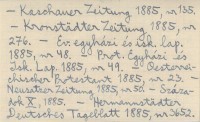 – Kaschauer Zeitung 1885, nr 135.
– Kronstädter Zeitung 1885, nr
276. – Ev. egyházi és isk. lap.
1885, nr 48. – Prot. Egyházi és
Isk. Lap. 1885, nr 49. – Oesterrei-
chischer Protestant 1885, nr 23. –
Neusatzer Zeitung 1885, nr 50. – Száza-
dok X, 1885. – Hermannstädter
Deutsches Tageblatt 1885, nr 3652.